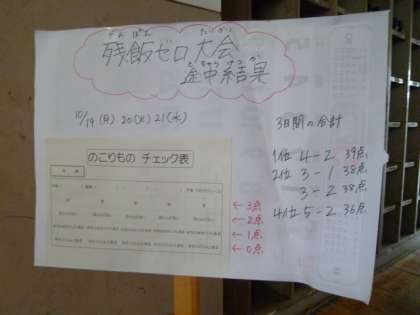 ざんぱん たいかい
残飯ゼロ大会
とちゅうけっか
途中結果
10/19(月) 20(火) 21(水)
3日間の合計
1位 4-2 39点
2位 3-1 38点
3-2 38点
4位 5-2 36点
のこりもの チェック表
←3点
←2点
←1点
←0点